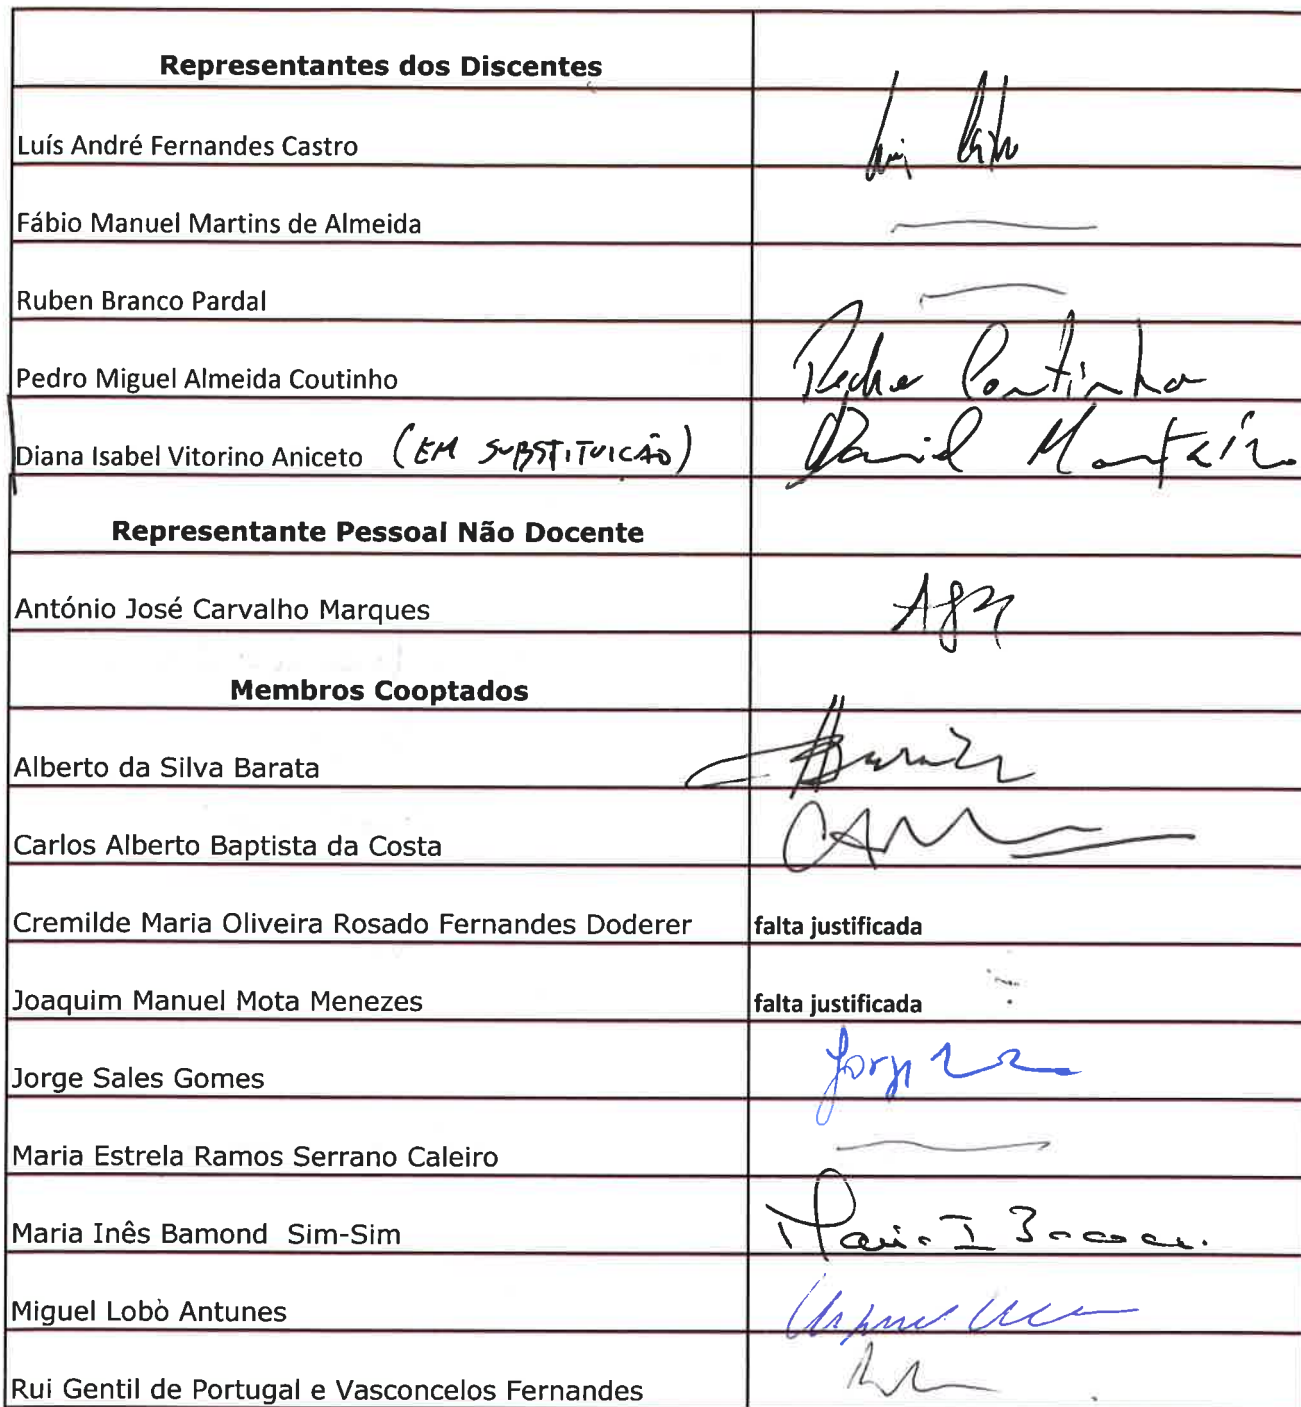 Representantes dos Discentes
Luís André Fernandes Castro
Fábio Manuel Martins de Almeida
Ruben Branco Pardal
Pedro Miguel Almeida Coutinho Pedro Coutinho
Diana Isabel Vitorino Aniceto (EM SUBSTITUIÇÃO) Daniel Monteiro
Representante Pessoal Não Docente
António José Carvalho Marques
Membros Cooptados
Alberto da Silva Barata
Carlos Alberto Baptista da Costa
Cremilde Maria Oliveira Rosado Fernandes Doderer falta justificada
Joaquim Manuel Mota Menezes falta justificada
Jorge Sales Gomes
Maria Estrela Ramos Serrano Caleiro
Maria Inês Bamond Sim-Sim
Miguel Lobo Antunes
Rui Gentil de Portugal e Vasconcelos Fernandes